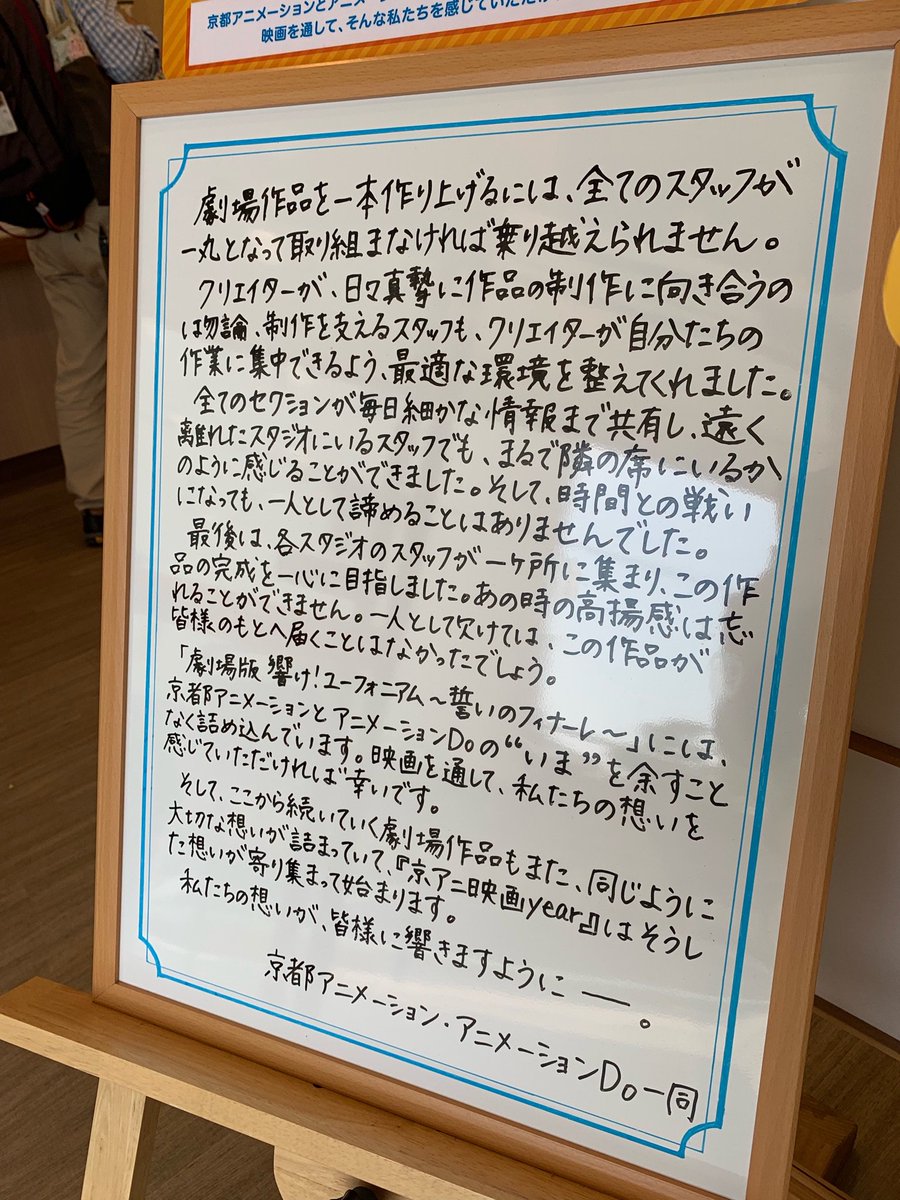 京都アニメーションとアニメーシ
映画を通して、そんな私たちを感じていただけ
劇場作品を一本作り上げるには、全てのスタッフが
一丸となって取り組まなければ乗り越えられません。
クリエイターが、日々真摯に作品の制作に向き合うの
は勿論、制作を支えるスタッフも、クリエイターが自分たちの
作業に集中できるよう、最適な環境を整えてくれました。
全てのセクションが毎日細かな情報まで共有し、遠く
離れたスタジオにいるスタッフでも、まるで隣の席にいるか
のように感じることができました。そして、時間との戦い
になっても、一人として諦めることはありませんでした。
最後は、各スタジオのスタッフが一ヶ所に集まり、この作
品の完成を一心に目指しました。あの時の高揚感は忘
れることができません。一人として欠けては、この作品が
皆様のもとへ届くことはなかったでしょう。
「劇場版 響け!ユーフォニアム～誓いのフィナーレ～」には、
京都アニメーションとアニメーションDoの“いま”を余すこと
なく詰め込んでいます。映画を通して、私たちの想いを
感じていただければ幸いです。
そして、ここから続いていく劇場作品もまた、同じように
大切な想いが詰まっていて、『京アニ映画year』はそうし
た想いが寄り集まって始まります。
私たちの想いが、皆様に響きますように――。
京都アニメーション・アニメーションDo一同